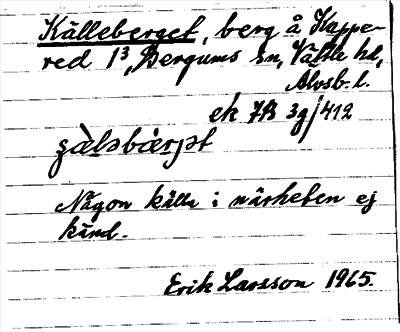 Källeberget, berg å Kappe-
red 1³, Bergums sn, Vättle hd,
Älvsb. l.
ek 7B 3g/412
Någon källa i närheten ej
känd.
Erik Larsson 1965.